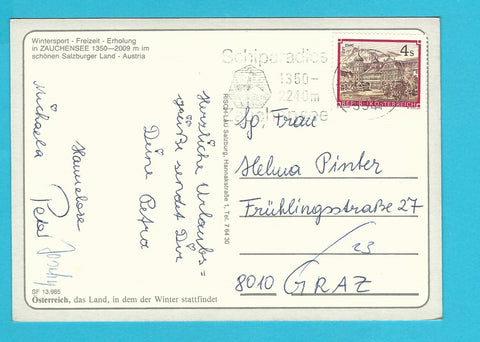 Wintersport - Freizeit - Erholung
in ZAUCHENSEE 1350—2009 m im
schönen Salzburger Land - Austria
Schiparadies
1350-
2240m
4 s
REPUBLIK ÖSTERREICH
Herzliche Urlaubs=
grüße sendet Dir
Deine Petra
Hannelore
Michaela Peter
RISCH-LAU Salzburg, Hannakstraße 1, Tel. 7 64 30
Sg. Frau
Helma Pinter
Frühlingsstraße 27
/23
8010 GRAZ
SF 13.985
Österreich, das Land, in dem der Winter stattfindet